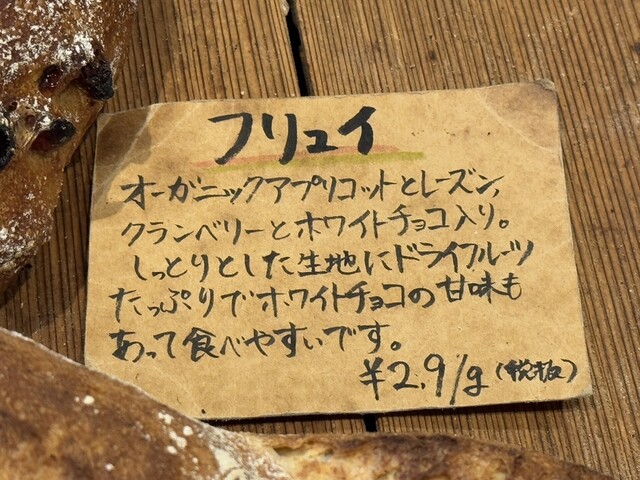 フリュイ
オーガニックアプリコットとレーズン、
クランベリーとホワイトチョコ入り。
しっとりとした生地にドライフルーツ
たっぷりでホワイトチョコの甘味も
あって食べやすいです。
¥2.9/g(税抜)